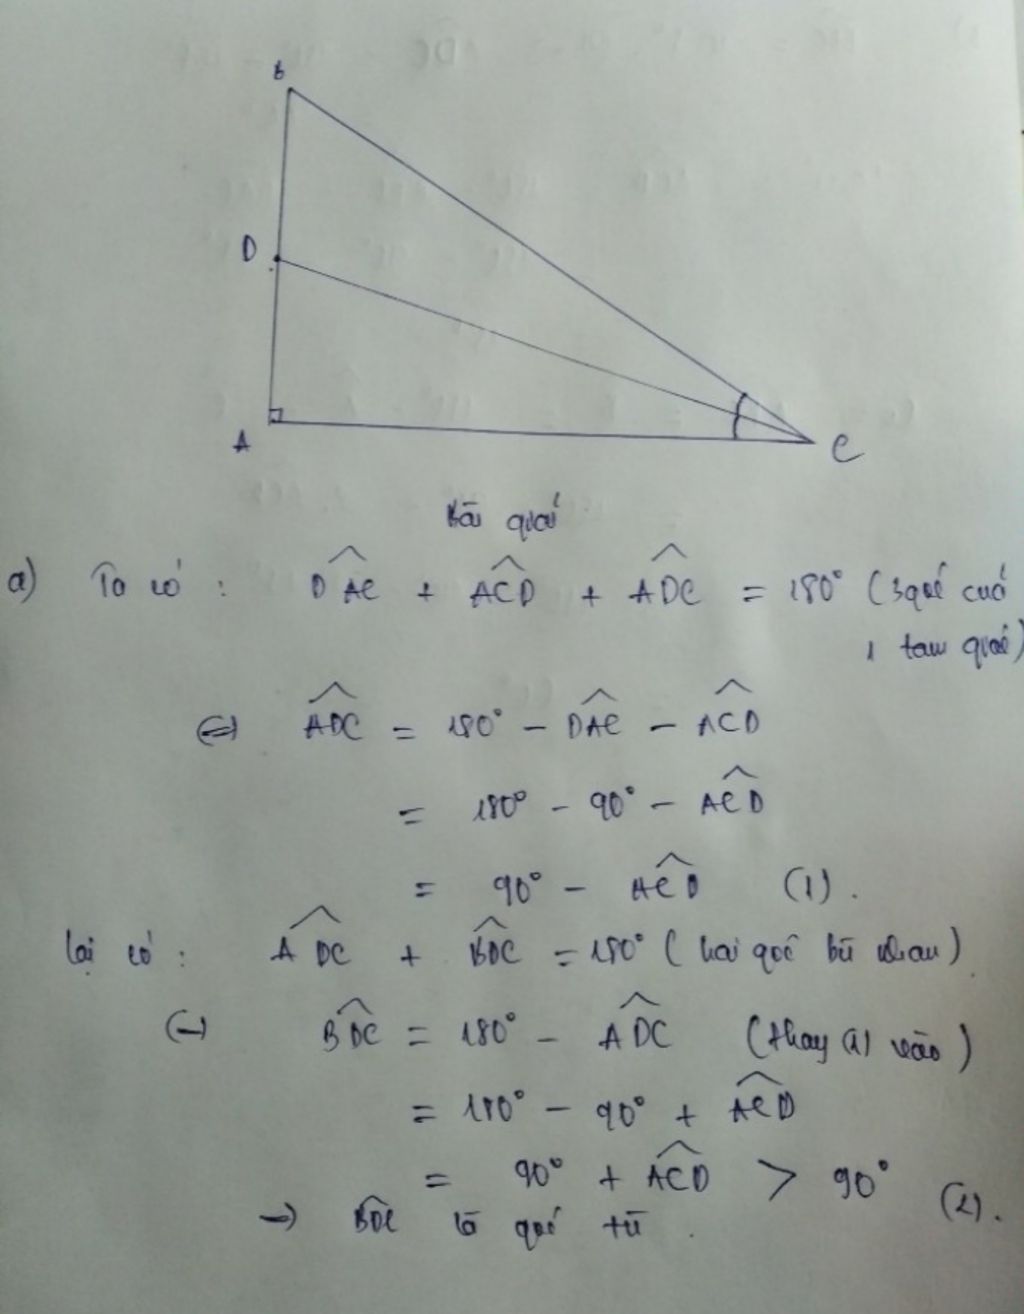 B
D
A
C
Bài giải
a) Ta có : \widehat{DAC} + \widehat{ACD} + \widehat{ADC} = 180° (3 góc của
1 tam giác)
⇔ \widehat{ADC} = 180° - \widehat{DAC} - \widehat{ACD}
= 180° - 90° - \widehat{ACD}
= 90° - \widehat{ACD} (1).
Lại có : \widehat{ADC} + \widehat{BDC} = 180° (hai góc bù nhau)
↔ \widehat{BDC} = 180° - \widehat{ADC} (thay (1) vào)
= 180° - 90° + \widehat{ACD}
= 90° + \widehat{ACD} > 90° (2).
→ \widehat{BDC} là góc tù.